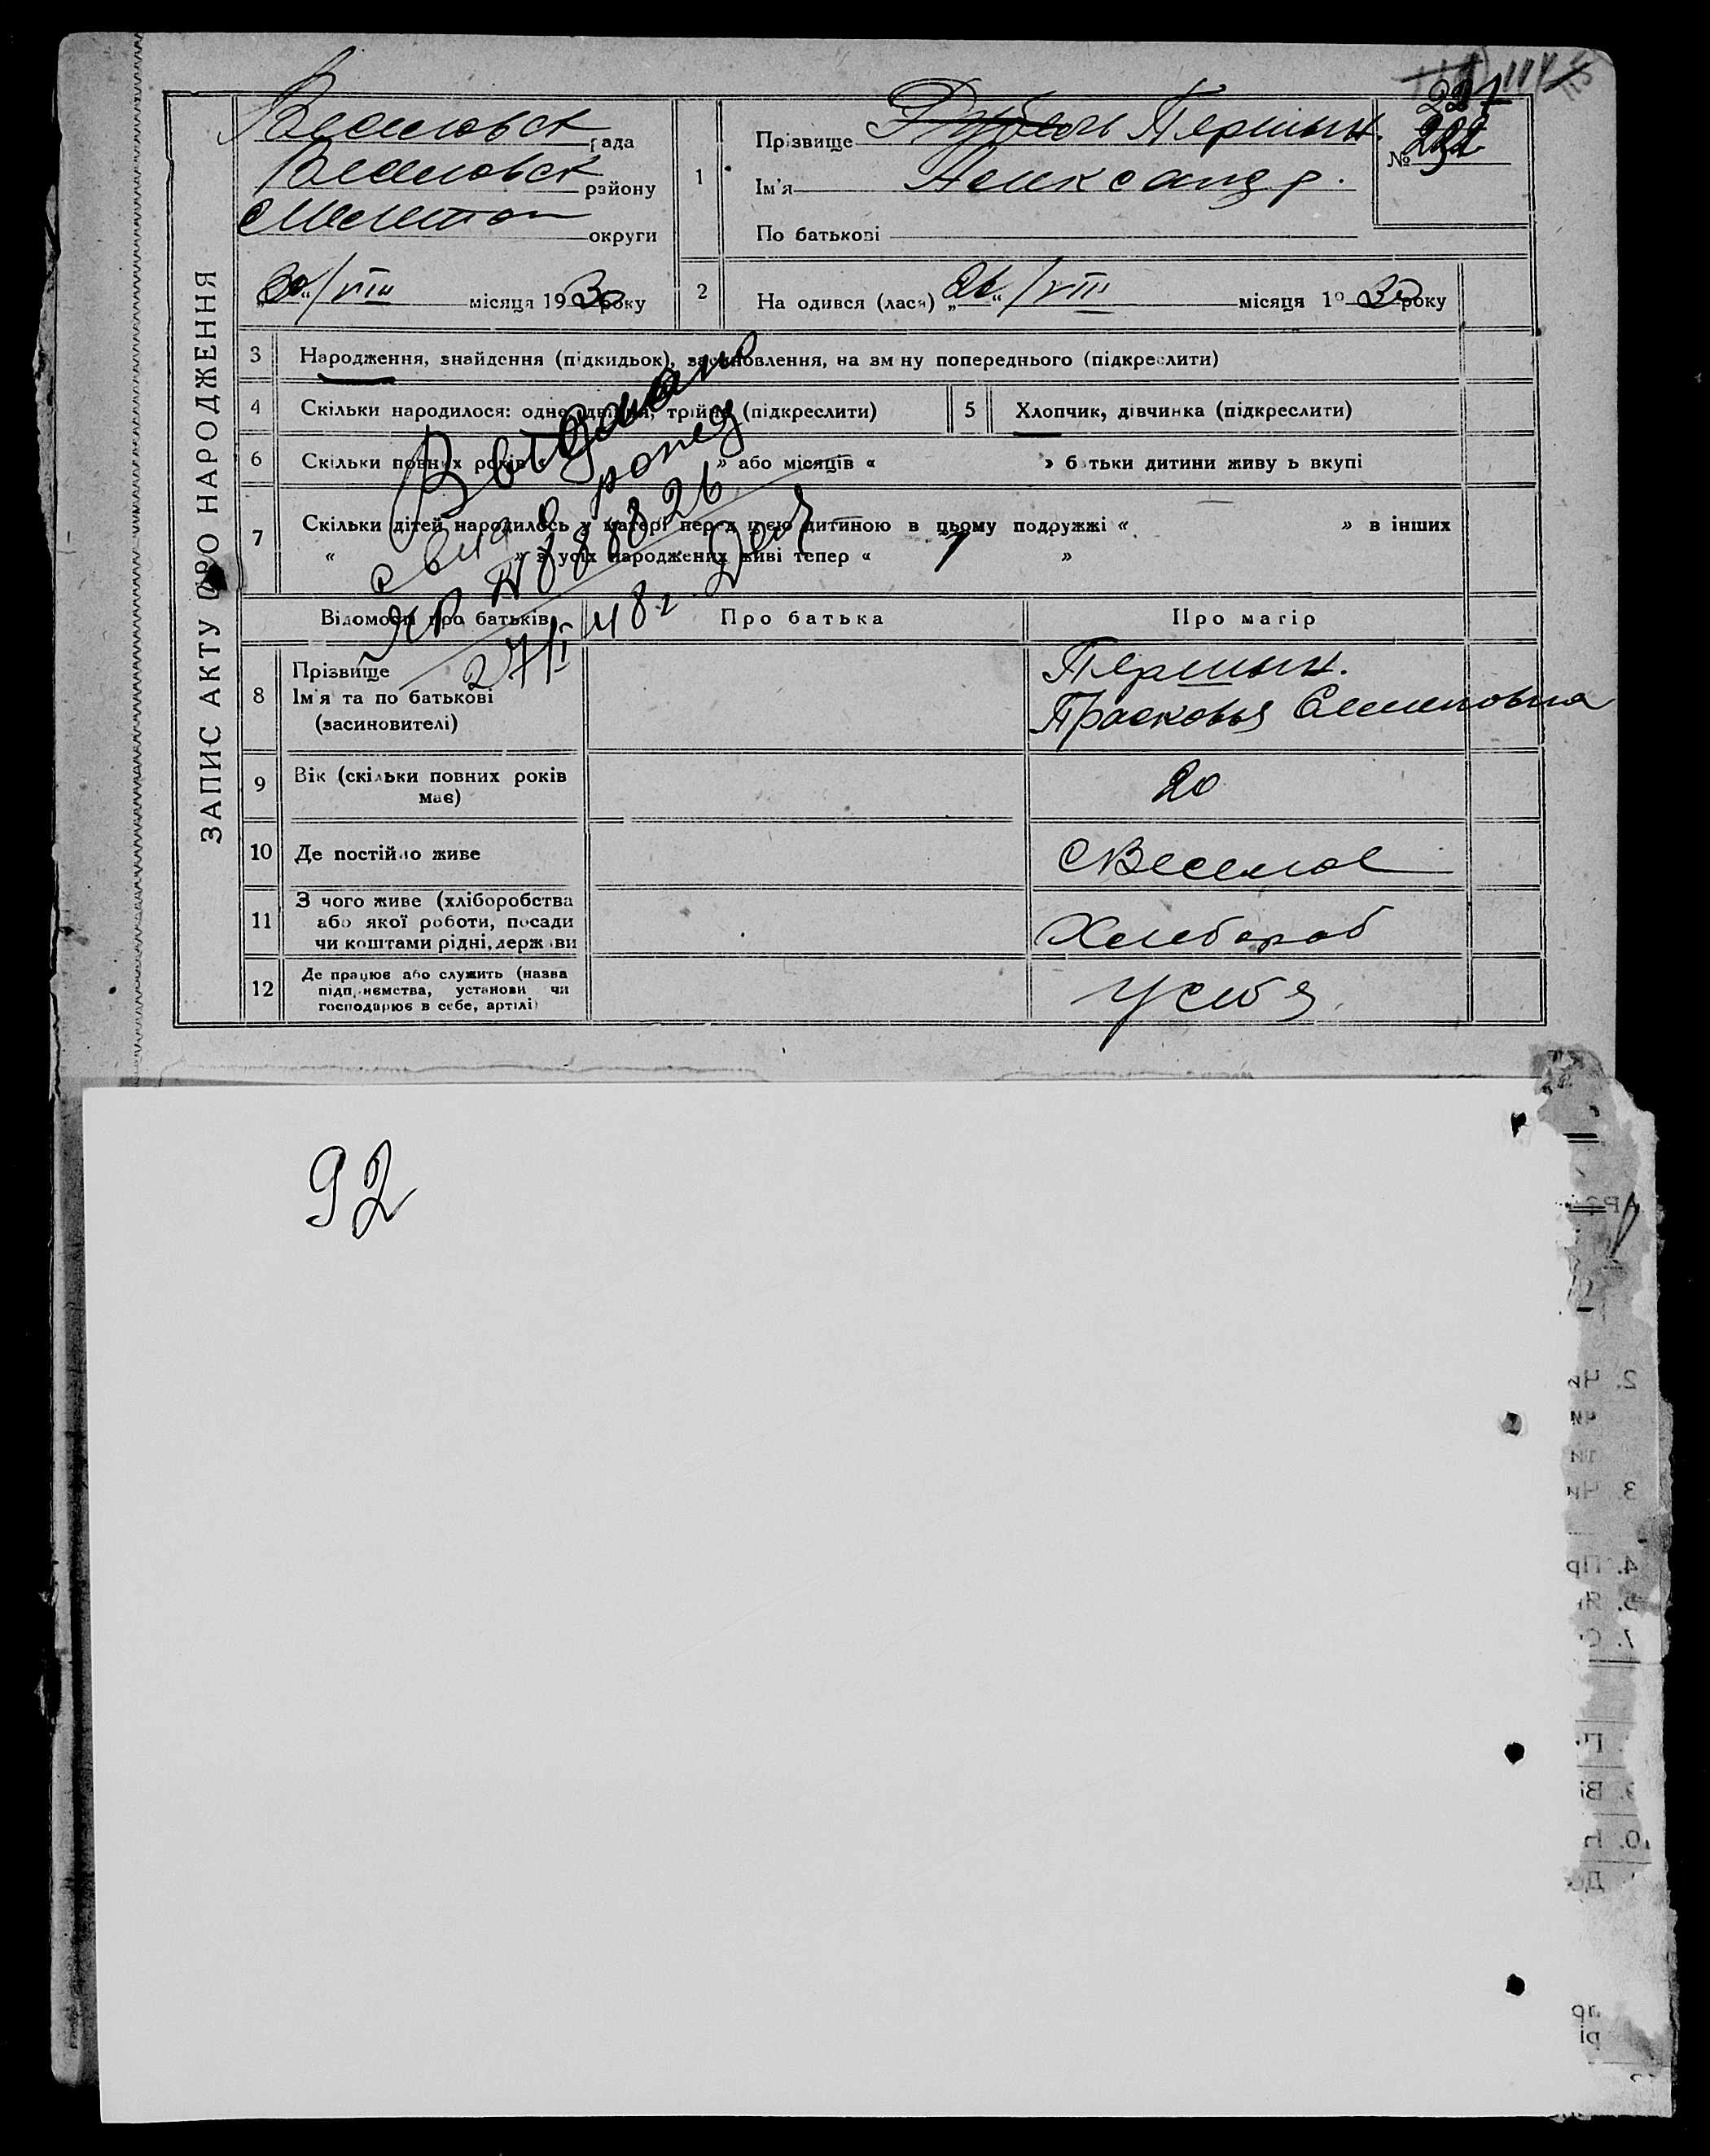 ЗАПИС АКТУ ПРО НАРОДЖЕННЯ
Веселовск рада
Веселовск району
Мелитоп округи
„30“/VIII місяця 1930 року
1
Прізвище Першин.
Ім'я Александр.
По батькові
№ 232
2
На одився (лася) „26“/VIII місяця 19 30 року
3 Народження, знайдення (підкидьок), засиновлення, на зм ну попереднього (підкреслити)
4 Скільки народилося: одне, двійня, трійня (підкреслити)
5 Хлопчик, дівчинка (підкреслити)
6 Скільки повних років « » або місяців « » батьки дитини живуть вкупі
7 Скільки дітей народилось у матері перед цією дитиною в цьому подружжі « » в інших
« » з усіх народжених живі тепер « »
Выдано
свид о рожд
ЯР № 888826
27/II 48 г.
Відомості про батьків
Про батька
Про матір
8 Прізвище
Ім'я та по батькові
(засиновителі)
Першин.
Прасковья Семеновна
9 Вік (скільки повних років
має)
20
10 Де постійно живе
с Веселое
11 З чого живе (хліборобства
або якої роботи, посади
чи коштами рідні, держави
Хлебороб
12 Де працює або служить (назва
підприємства, установи чи
господарює в себе, артілі)
У себя
92